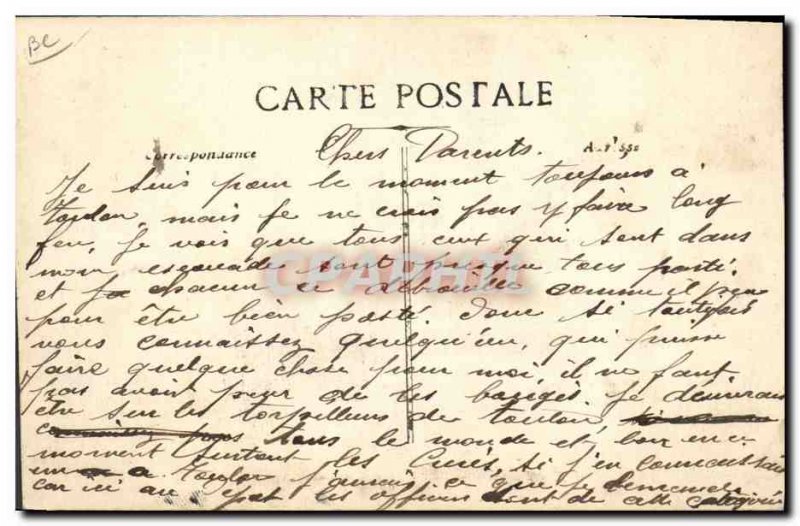 BC
CARTE POSTALE
Correspondance Chers Parents. Adresse
Je suis pour le moment toujours à
Toulon, mais je ne crois pas y faire long
feu, je vois que tous ceux qui sont dans
mon escouade sont presque tous parti.
et chacun se débrouille comme il peu
pour être bien posté. donc si toutefois
vous connaissez quelqu'un, qui puisse
faire quelque chose pour moi, il ne faut
pas avoir peur de les. Je désirerais
être sur les torpilleurs de Toulon,
tous le monde est bon en ce
moment surtout les Curés, si j'en connaissais
un à Toulon j'aurais ce que je demande
car ici au les officiers sont de cette catégorie